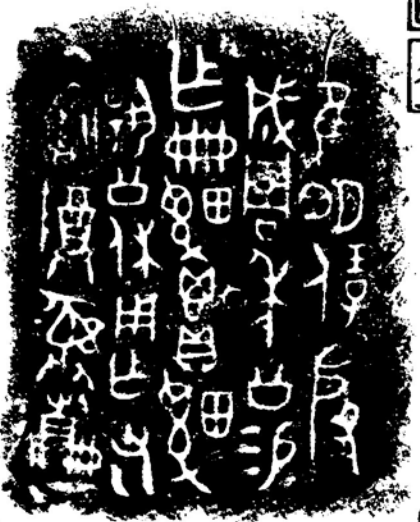 隹明保殷
成周年公易
乍冊䰧鬯貝䰧
揚公休用乍父
乙寶尊彝冊